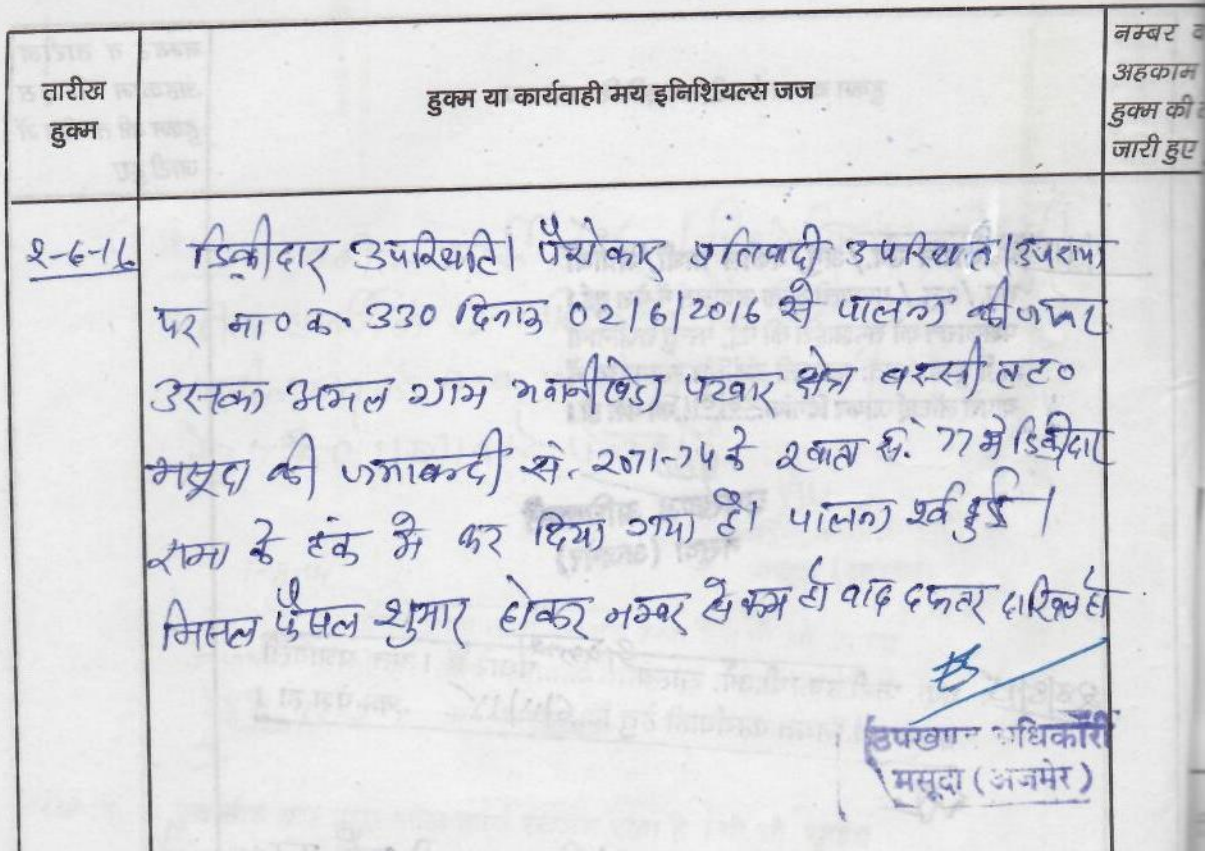 तारीख
हुक्म
हुक्म या कार्यवाही मय इनिशियल्स जज
नम्बर व
अहकाम
हुक्म की
जारी हुए
2-6-16 डिक्रीदार उपस्थिति। पैरोकार प्रतिवादी उपस्थिति।
पर ना० क. 330 दिनांक 02/6/2016 से पालना की जाकर
उसका अमल ग्राम भवानीखेडा पटवार क्षेत्र बस्सी
मसूदा की जमाबन्दी सं. 2071-74 के खाता सं. 77 मे डिक्रीदार
रामा के हक मे कर दिया गया है। पालना हुई।
मिसल फैसल शुमार होकर नम्बर से कम हो वाद दफ्तर दाखिल हो
उपखण्ड अधिकारी
मसूदा (अजमेर)